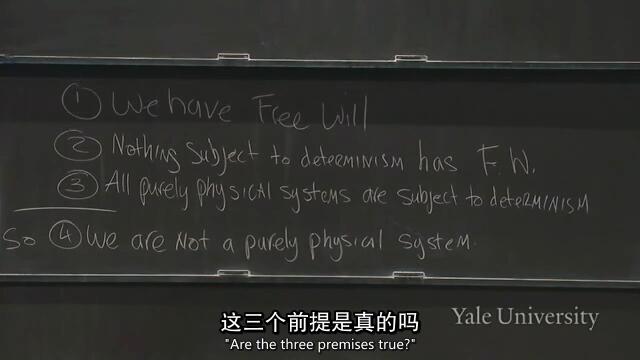 ① We have Free Will
② Nothing subject to determinism has F.W.
③ All purely physical systems are subject to determinism
So ④ We are not a purely physical system.
这三个前提是真的吗
"Are the three premises true?"
Yale University